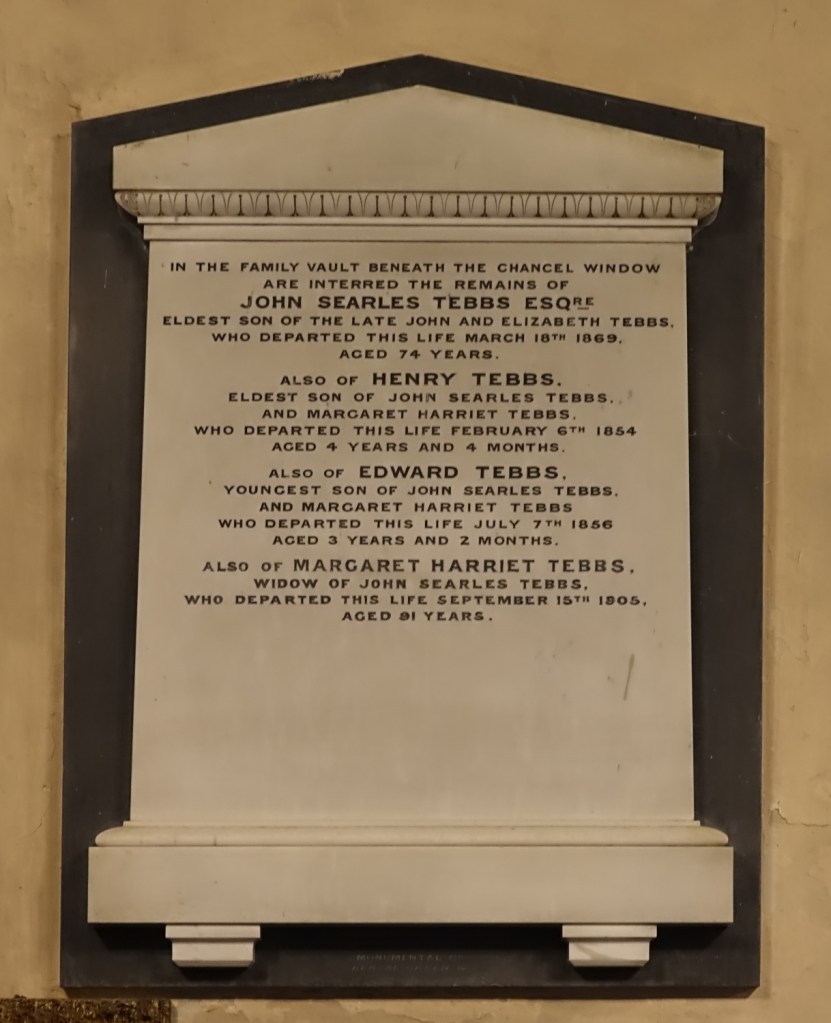 IN THE FAMILY VAULT BENEATH THE CHANCEL WINDOW
ARE INTERRED THE REMAINS OF
JOHN SEARLES TEBBS ESQRE
ELDEST SON OF THE LATE JOHN AND ELIZABETH TEBBS,
WHO DEPARTED THIS LIFE MARCH 18TH 1869,
AGED 74 YEARS.
ALSO OF HENRY TEBBS,
ELDEST SON OF JOHN SEARLES TEBBS,
AND MARGARET HARRIET TEBBS,
WHO DEPARTED THIS LIFE FEBRUARY 6TH 1854
AGED 4 YEARS AND 4 MONTHS.
ALSO OF EDWARD TEBBS,
YOUNGEST SON OF JOHN SEARLES TEBBS,
AND MARGARET HARRIET TEBBS
WHO DEPARTED THIS LIFE JULY 7TH 1856
AGED 3 YEARS AND 2 MONTHS.
ALSO OF MARGARET HARRIET TEBBS,
WIDOW OF JOHN SEARLES TEBBS,
WHO DEPARTED THIS LIFE SEPTEMBER 15TH 1905,
AGED 91 YEARS.
MONUMENTAL